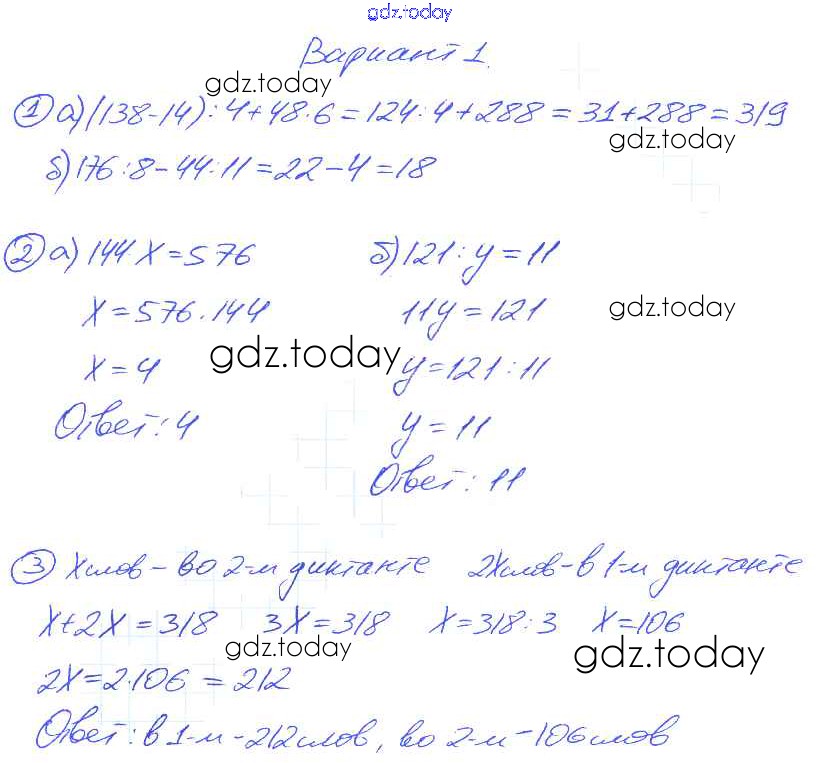 gdz.today
Вариант 1.
gdz.today
① а) (138-14):4+48·6=124:4+288=31+288=319
gdz.today
б) 176:8-44:11=22-4=18
② а) 144·X=576 б) 121:y=11
X=576·144 11y=121 gdz.today
gdz.today
X=4 y=121:11
Ответ: 4 y=11
Ответ: 11
③ X слов - во 2-м диктанте 2X слов - в 1-м диктанте
X+2X=318 3X=318 X=318:3 X=106
gdz.today gdz.today
2X=2·106=212
Ответ: в 1-м - 212 слов, во 2-м - 106 слов